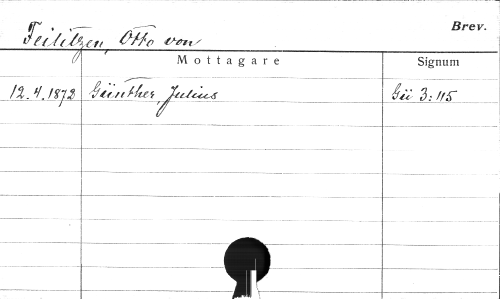 Brev.
Feilitzen, Otto von
Mottagare Signum
12.4.1872 Günther, Julius Gü 3:115